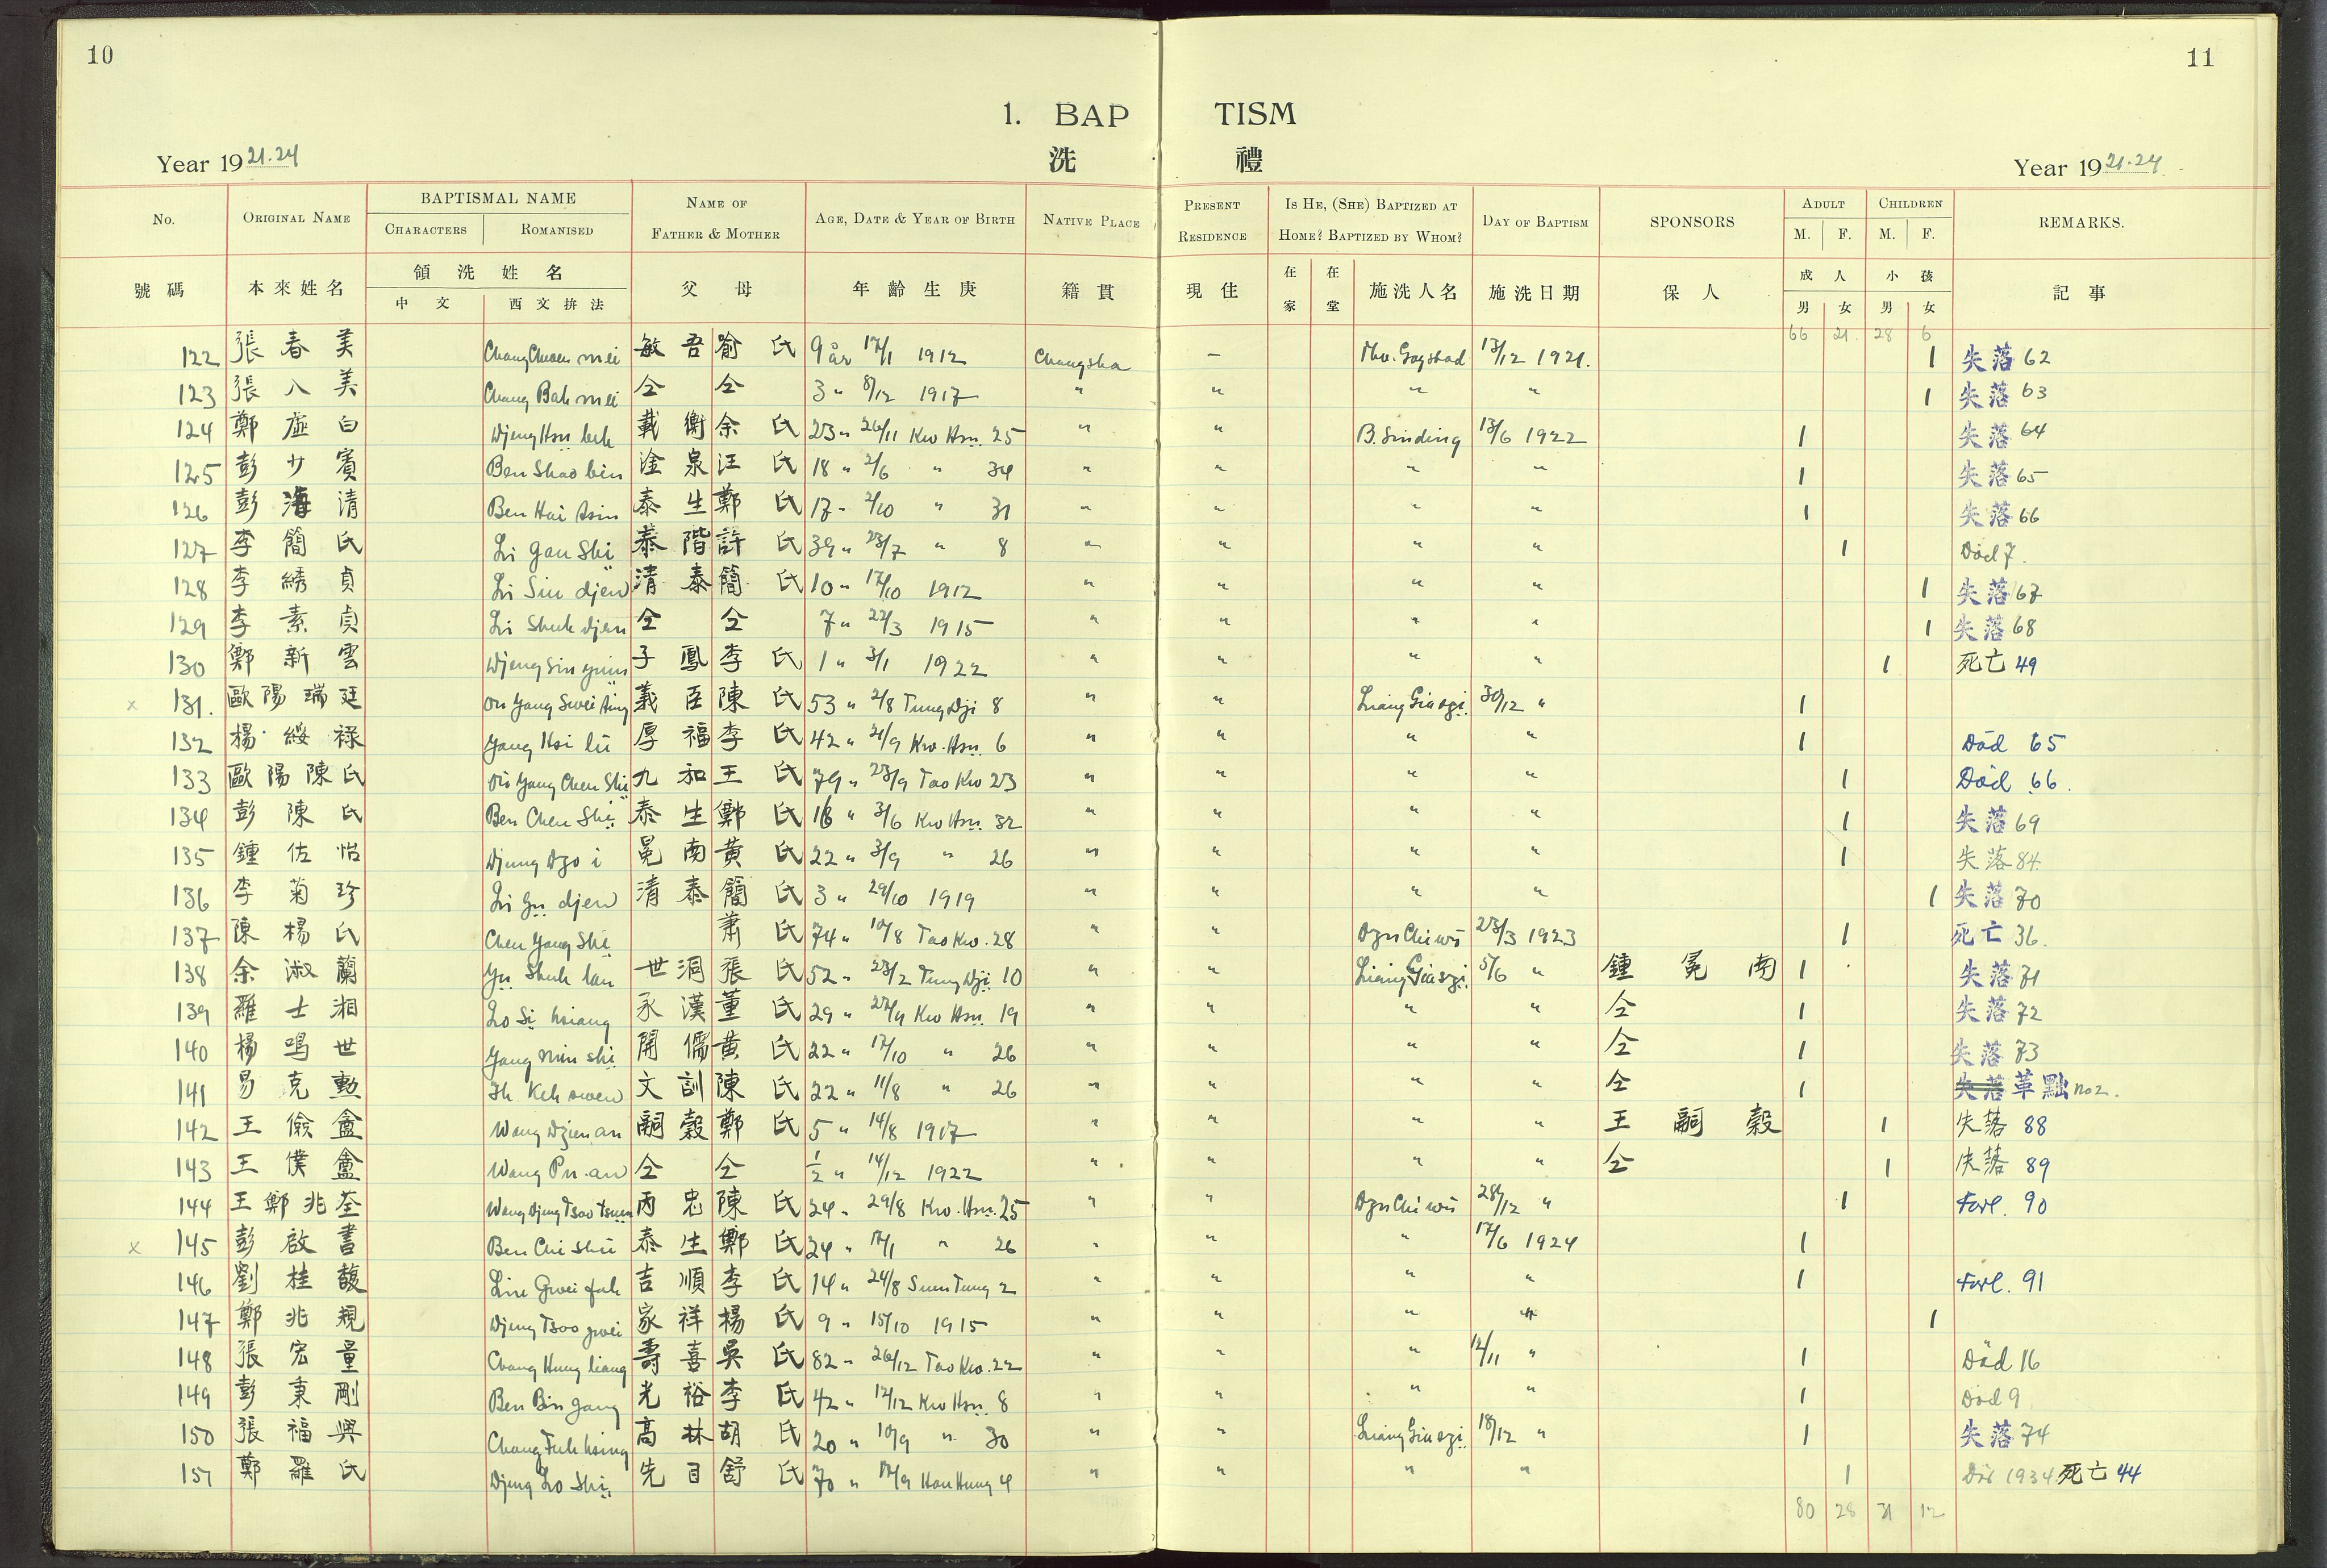 10
11
1. BAP TISM
洗 禮
Year 19 21-24
Year 19 21-24
No. ORIGINAL NAME BAPTISMAL NAME NAME OF FATHER & MOTHER AGE, DATE & YEAR OF BIRTH NATIVE PLACE PRESENT RESIDENCE IS HE, (SHE) BAPTIZED AT HOME? BAPTIZED BY WHOM? DAY OF BAPTISM SPONSORS ADULT CHILDREN REMARKS.
CHARACTERS ROMANISED M. F. M. F.
號碼 本來姓名 領洗姓名 父母 年齡生庚 籍貫 現住 在家 在堂 施洗人名 施洗日期 保人 成人 小孩 記事
中文 西文拚法 男 女 男 女
66 21 28 6
122 張春美 Chang Chuen mei 敏吾 喻氏 9 år 17/1 1912 Changsha — Gogstad 13/12 1921. 1 失落 62
123 張八美 Chang Bah mei 仝 仝 3 " 8/12 1917 " " " " 1 失落 63
124 鄭虛白 Djeng Hsu beh 載衡 余氏 23 " 26/11 Kw Hsu. 25 " " B. Sinding 13/6 1922 1 失落 64
125 彭少賓 Ben Shao bin 淦泉 汪氏 18 " 2/6 " 34 " " " " 1 失落 65
126 彭海清 Ben Hai tsin 泰生 鄭氏 17 " 2/10 " 31 " " " " 1 失落 66
127 李簡氏 Li Gan Shi 泰階 許氏 39 " 23/7 " 8 " " " " 1 Död 7.
128 李綉貞 Li Siu djen 清泰 簡氏 10 " 17/10 1912 " " " " 1 失落 67
129 李素貞 Li Shuh djen 仝 仝 7 " 22/3 1915 " " " " 1 失落 68
130 鄭新雲 Djeng Sin yuin 子鳳 李氏 1 " 3/1 1922 " " " " 1 死亡 49
x 131. 歐陽瑞廷 Ou Yang Swei ting 義臣 陳氏 53 " 2/8 Tung Dji 8 " " Liang Gia szi 30/12 " 1
132 楊綏祿 Yang Hsi lu 厚福 李氏 42 " 21/9 Kw. Hsu. 6 " " " " 1 Död 65
133 歐陽陳氏 Ou Yang Chen Shi 九和 王氏 79 " 23/9 Tao Kw 23 " " " " 1 Död 66.
134 彭陳氏 Ben Chen Shi 泰生 鄭氏 16 " 3/6 Kw Hsu 32 " " " " 1 失落 69
135 鍾佐怡 Djung Dzo i 冕南 黃氏 22 " 3/9 " 26 " " " " 1 失落 84.
136 李菊珍 Li Gu djen 清泰 簡氏 3 " 29/10 1919 " " " " 1 失落 70
137 陳楊氏 Chen Yang Shi 蕭氏 74 " 10/8 Tao Kw. 28 " " Dzu Chi wu 23/3 1923 1 死亡 36.
138 余淑蘭 Yu Shuh lan 世洞 張氏 52 " 23/2 Tung Dji 10 " " Liang Gia szi 5/6 " 鍾冕南 1 失落 71
139 羅士湘 Lo Si hsiang 承漢 董氏 29 " Kw Hsu. 19 " " " " 仝 1 失落 72
140 楊鳴世 Yang Min shi 開儒 黃氏 22 " 17/10 " 26 " " " " 仝 1 失落 73
141 易克勳 Ih Keh swen 文訓 陳氏 22 " 11/8 " 26 " " " " 仝 1 失落 革黜 no 2.
142 王儉盦 Wang Dzien an 嗣穀 鄭氏 5 " 14/8 1917 " " " " 王嗣穀 1 失落 88
143 王僕盦 Wang Pu an 仝 仝 1/2 " 14/12 1922 " " " " 仝 1 失落 89
144 王鄭兆荃 Wang Djeng Tsao Tsuen 丙忠 陳氏 24 " 29/8 Kw. Hsu. 25 " " Dzu Chi wu 28/12 " 1 Forl. 90
x 145 彭啟書 Ben Chi Shu 泰生 鄭氏 24 " 17/1 " 26 " " " 17/6 1924 1
146 劉桂馥 Liu Gwei fuh 吉順 李氏 14 " 24/8 Suen Tung 2 " " " " 1 Forl. 91
147 鄭兆規 Djeng Tsao gwei 家祥 楊氏 9 " 15/10 1915 " " " " 1
148 張宏量 Chang Hung liang 壽喜 吳氏 82 " 26/12 Tao Kw. 22 " " " 12/11 " 1 Död 16
149 彭秉剛 Ben Bin gang 光裕 李氏 42 " 12/12 Kw Hsu. 8 " " " " 1 Död 9
150 張福興 Chang Fuh hsing 高林 胡氏 20 " 10/9 " 30 " " Liang Gia szi 18/12 " 1 失落 74
151 鄭羅氏 Djeng Lo Shi 先目 舒氏 70 " 17/9 Han Hung 4 " " " " 1 1934 死亡 44
80 28 31 12